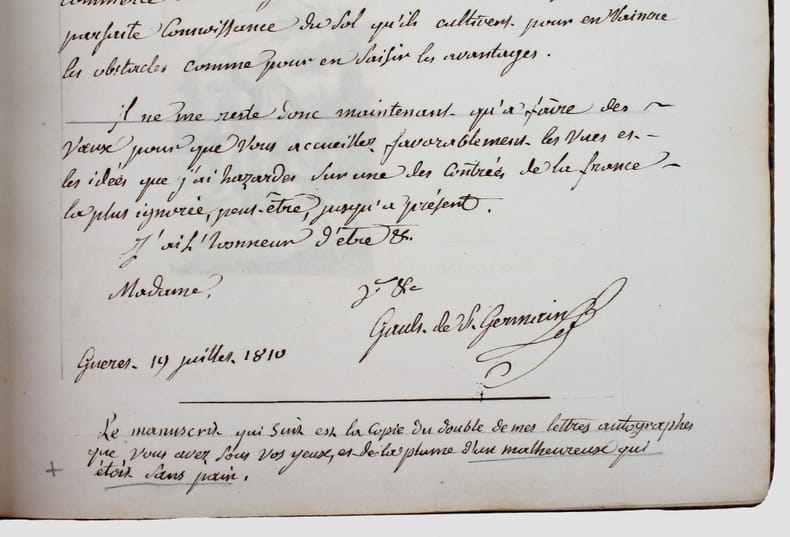 parfaite Connoissance du Sol qu'ils cultivent pour en Vaincre
les obstacles comme pour en Saisir les avantages.
jl ne me reste donc maintenant qu'a faire des
Vœux pour que Vous accueillez favorablement les Vues et
les idées que j'ai hazardés Sur une des Contrées de la france
la plus ignorée, peut-être, jusqu'a présent.
J'ai L'honneur d'être &c.
Madame,
&c
Gault de St. Germain
Gueret 19 juillet 1810
Le manuscrit qui Suit est la Copie du double de mes lettres autographes
que Vous avez Sous Vos yeux, et de la plume d'un malheureux qui
étoit Sans pain.